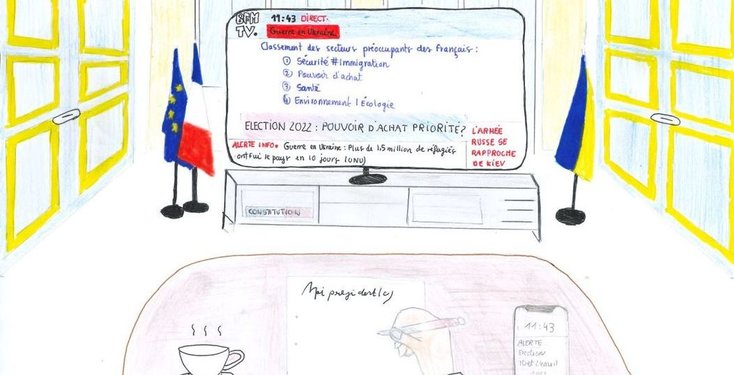 BFM
TV.
11:43 DIRECT.
Guerre en Ukraine
Classement des secteurs préoccupants des Français :
① Sécurité # Immigration
② Pouvoir d'achat
③ Santé
④ Environnement / Écologie
ELECTION 2022 : POUVOIR D'ACHAT PRIORITÉ?
L'ARMÉE
RUSSE SE
RAPPROCHE
DE KIEV
ALERTE INFO. Guerre en Ukraine : Plus de 1.5 million de réfugiés
ont fui le pays en 10 jours (ONU)
CONSTITUTION
Moi président(e)
11:43
ALERTE
Election